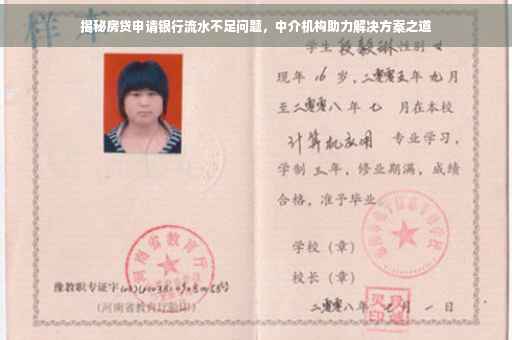 揭秘房贷申请银行流水不足问题，中介机构助力解决方案之道
样本
学生段毅琳性别女
现年16岁，二零零五年九月
至二零零八年七月在本校
计算机应用 专业学习，
学制三年，修业期满，成绩
合格，准予毕业
学校（章）
校长（章）
二零零八年七月一日
河南省教育厅
豫教职专证字
（河南省教育厅验印）